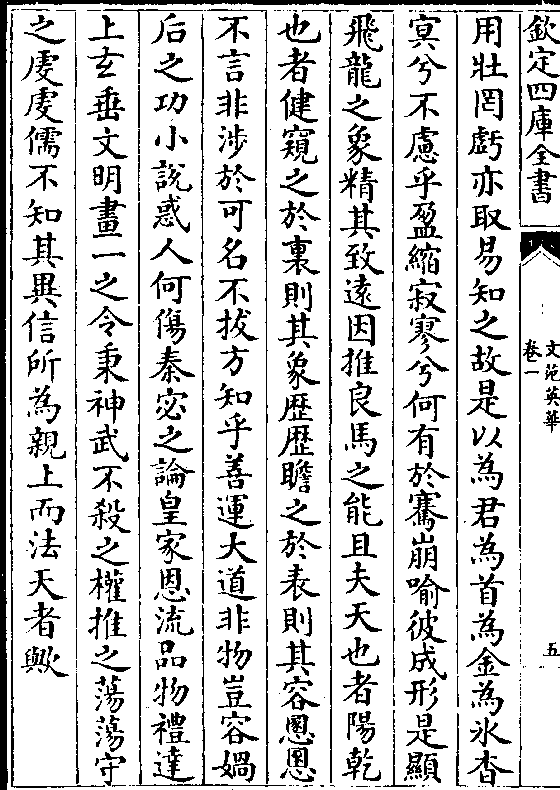 欽定四庫全書
文苑英華
卷一
五
用壯罔虧亦取易知之故是以為君為首為金為氷杳
冥兮不慮乎盈縮寂寥兮何有於騫崩喻彼成形是顯
飛龍之象精其致遠因推良馬之能且夫天也者陽乾
也者健窺之於裏則其象歴歴瞻之於表則其容恩恩
不言非涉於可名不拔方知乎善運大道非物豈容媧
后之功小說惑人何傷秦宓之論皇家恩流品物禮達
上玄垂文明畫一之令秉神武不殺之權推之蕩蕩守
之虔虔儒不知其異信所為親上而法天者歟